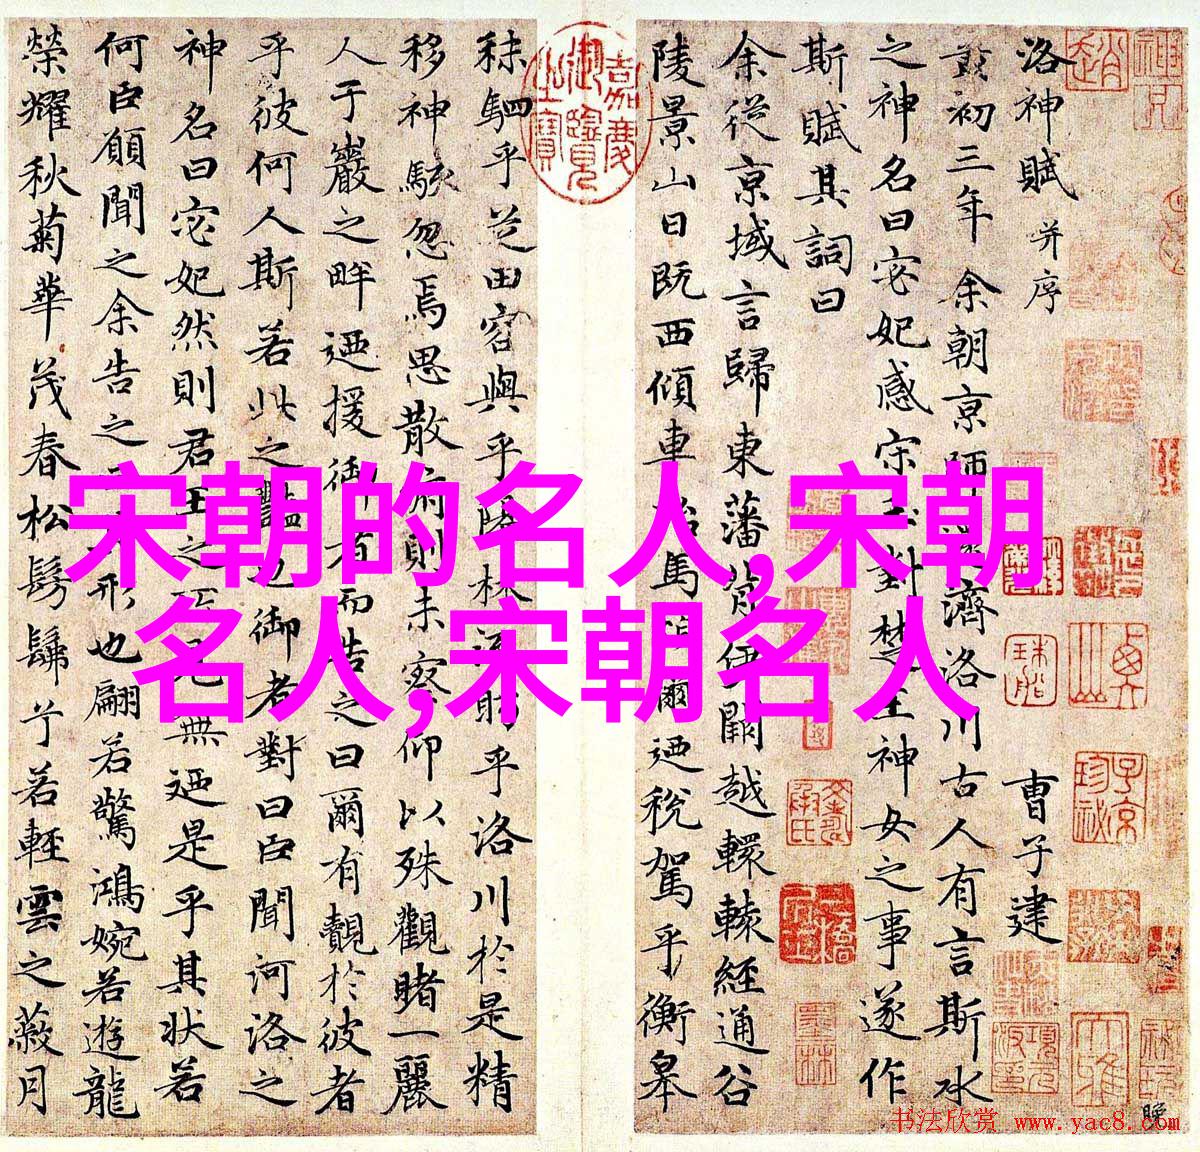 宋朝的名人,宋朝
名人,宋朝名人
洛神賦 并序 曹子建
黃初三年余朝京師還濟洛川古人有言斯水
之神名曰宓妃感宋玉對楚王神女之事遂作
斯賦其詞曰
余從京域言歸東藩背伊闕越轘轅經通谷
陵景山日既西傾車殆馬煩爾迺稅駕乎衡皋
秣駟乎芝田容與乎陽林流眄乎洛川於是精
移神駭忽焉思散俯則未察仰以殊觀睹一麗
人于巖之畔迺援御者而告之曰爾有覿於彼者
乎彼何人斯若此之豔也御者對曰臣聞河洛之
神名曰宓妃然則君王之所見無迺是乎其状若
何臣願聞之余告之形也翩若驚鴻婉若遊龍
榮耀秋菊華茂春松髣髴兮若輕雲之蔽月
嘉慶御覽之寶
書法欣赏 www.yac8.com